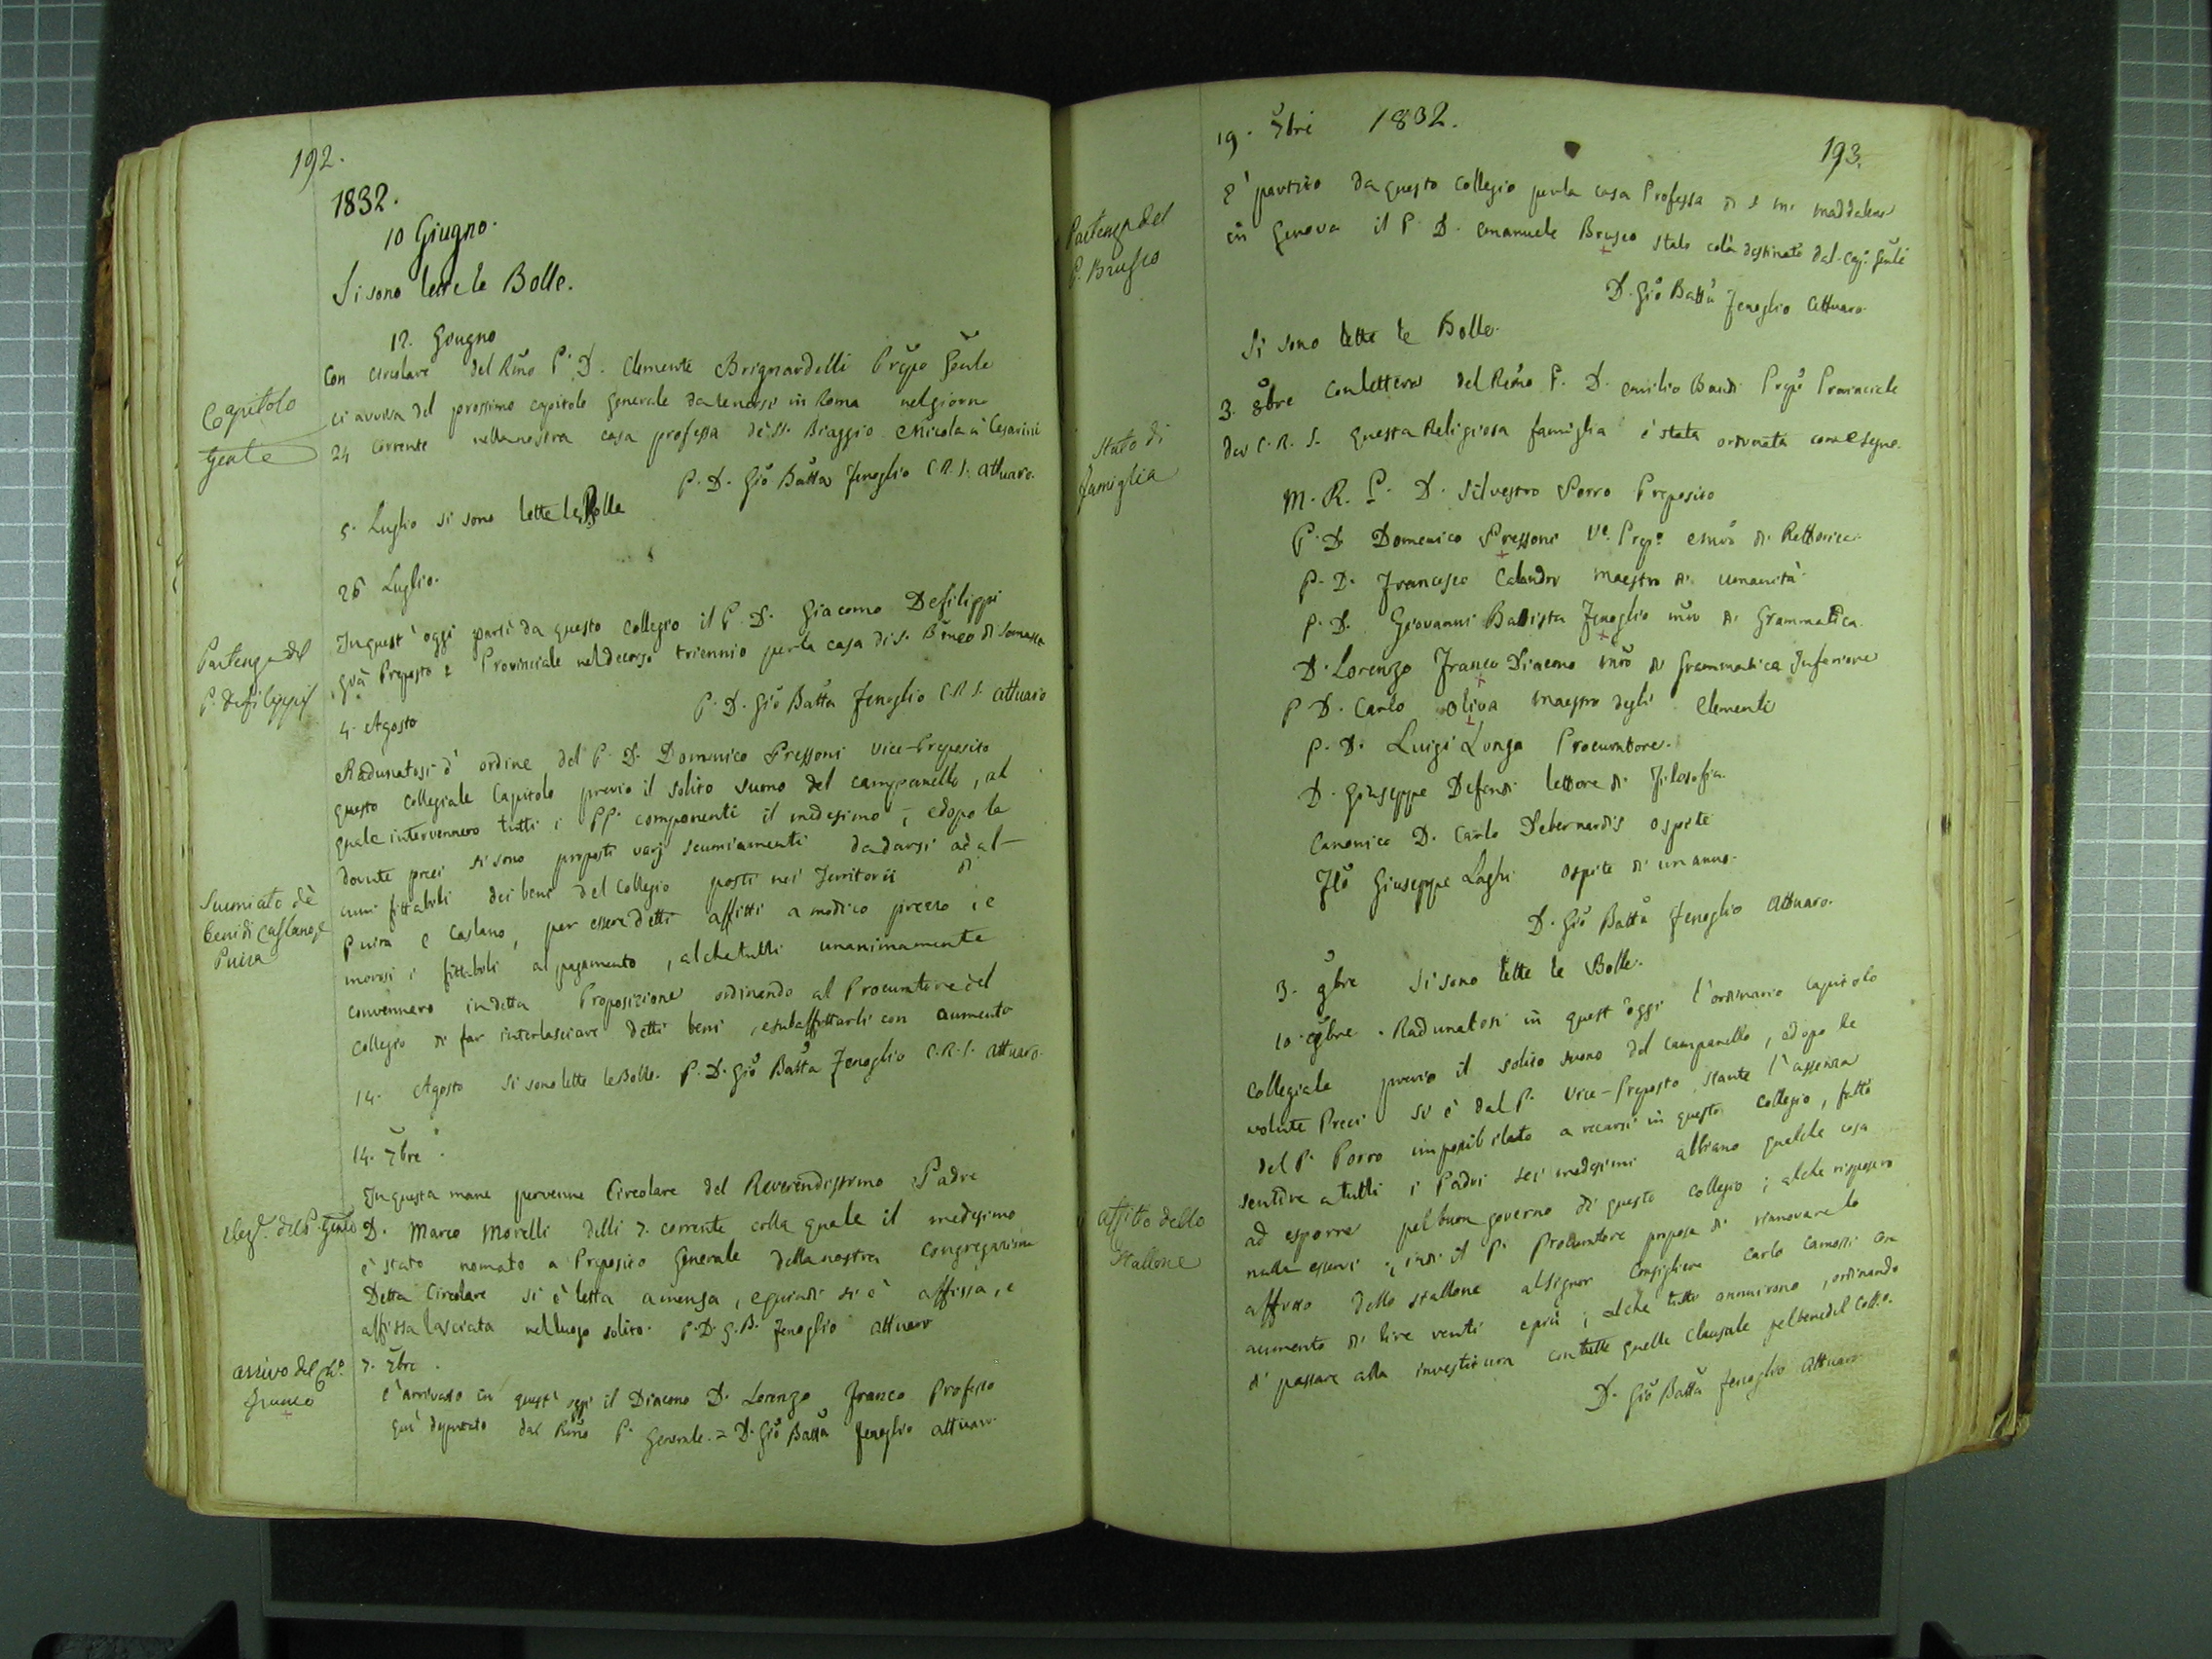 192.
1832.
10 Giugno.
Si sono lette le Bolle.
12. Giugno
Con circolare del Rmo P. D. Clemente Brignardelli Prepo Gnle
Capitolo
Gnale
ci avvisa del prossimo capitolo generale da tenersi in Roma nel giorno
24 corrente nella nostra casa professa de' SS. Biaggio e Nicola a' Cesarini
P. D. Gio Batta Fenoglio C. R. S. attuaro.
5. Luglio si sono lette le Bolle
26 Luglio.
Partenza del
P. Defilippi
In quest'oggi partì da questo collegio il P. D. Giacomo Defilippi
già Preposto e Provinciale nel decorso triennio per la casa di S. Bmeo di Somasca
P. D. Gio Batta Fenoglio C. R. S. attuaro
4. Agosto
Radunatosi d'ordine del P. D. Domenico Pressoni Vice-Preposito
questo collegiale Capitolo previo il solito suono del campanello, al
quale intervennero tutti i PP. componenti il medesimo, e dopo le
dovute preci si sono proposti varj scumiamenti da darsi ad al-
Scumiato de'
beni di Caslano e
Puira
cuni fittaboli dei beni del Collegio posti nei Territorii di
Puira e Caslano, per essere detti affitti a modico prezzo, e
morosi i fittaboli al pagamento, al che tutti unanimamente
convennero in detta Proposizione ordinando al Procuratore del
Collegio di far interlasciare detti beni, e subaffittarli con aumento
14. Agosto Si sono lette le Bolle. P. D. Gio Batta Fenoglio C. R. S. attuaro.
14. 7bre.
In questa mane pervenne Circolare del Reverendissimo Padre
Elez. del P. Gnle
D. Marco Morelli delli 7. corrente colla quale il medesimo
è stato nomato a Preposito Generale della nostra Congregazione
Detta Circolare si è letta a mensa, e quindi si è affissa, e
affissa lasciata nel luogo solito. P. D. G. B. Fenoglio attuaro
arrivo del Ch.
Franco
7. 8bre.
è arrivato in quest'oggi il Diacono D. Lorenzo Franco Professo
quì deputato dal Rmo P. Generale. = D. Gio Batta Fenoglio attuaro.
193.
19. 7bre 1832.
Partenza del
P. Brusco
È partito da questo Collegio per la casa Professa di S. Ma Maddalena
in Genova il P. D. Emanuele Brusco stato colà destinato dal Cap. Gnle
D. Gio Batta Fenoglio Attuaro.
Si sono lette le Bolle.
3. 8bre Con lettera del Rmo P. D. Emilio Baudi Prepo Provinciale
Stato di
famiglia
dei C. R. S. questa Religiosa famiglia è stata ordinata come segue.
M. R. P. D. Silvestro Porro Preposito
P. D. Domenico Pressoni Ve. Prepo e mro di Rettorica.
P. D. Francesco Calandri maestro di umanità
P. D. Giovanni Battista Fenoglio mro di Grammatica.
D. Lorenzo Franco Diacono mro di Grammatica Inferiore
P. D. Carlo Oliva maestro degli Elementi
P. D. Luigi Longa Procuratore.
D. Giuseppe Defendi lettore di Filosofia.
Canonico D. Carlo Debernardis ospite
Flo Giuseppe Laghi ospite di un anno.
D. Gio Batta Fenoglio Attuaro.
3. 9bre Si sono lette le Bolle.
10. 9bre. Radunatosi in quest'oggi l'ordinario capitolo
Collegiale previo il solito suono del campanello, e dopo le
volute Preci si è dal P. Vice-Preposto, stante l'assenza
del P. Porro impossibilitato a recarsi in questo Collegio, fatto
sentire a tutti i Padri sei medesimi abbiano qualche cosa
ad esporre pel buon governo di questo collegio; al che risposero
nulla esservi; indi il P. Procuratore propose di rinnovare lo
Affitto dello
Stallone
affitto dello stallone al Signor Consigliere Carlo Camossi con
aumento di lire venti e più; al che tutti annuirono, ordinando
di passare alla investitura con tutte quelle clausule pel bene del Coll.o.
D. Gio Batta Fenoglio attuaro